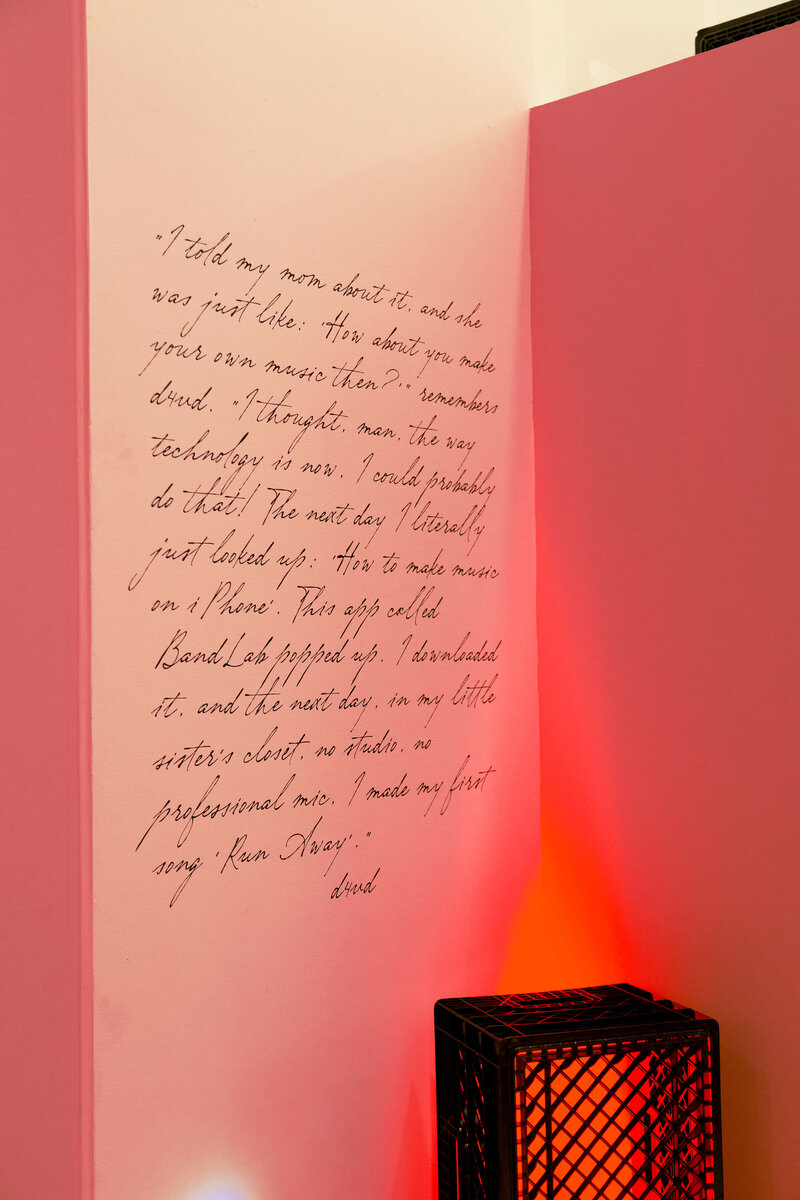 "I told my mom about it, and she
was just like: 'How about you make
your own music then?'" remembers
d4vd. "I thought, man, the way
technology is now, I could probably
do that! The next day I literally
just looked up: 'How to make music
on iPhone'. This app called
BandLab popped up. I downloaded
it, and the next day, in my little
sister's closet, no studio, no
professional mic, I made my first
song 'Run Away'."
d4vd